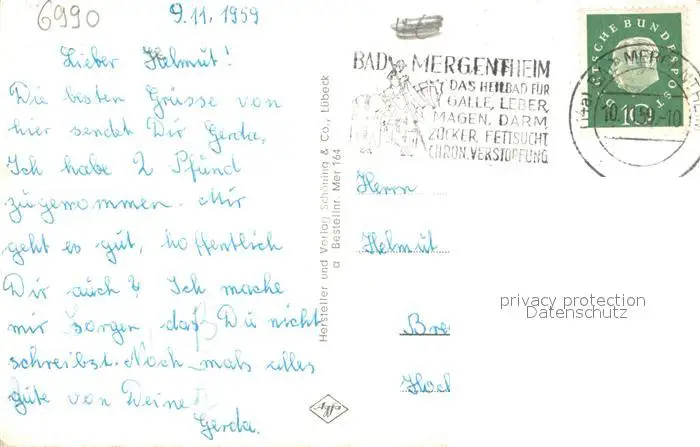 6990
9.11.1959
Lieber Helmut!
Die besten Grüsse von
hier sendet Dir Gerda.
Ich habe 2 Pfund
zugewommen. Mir
geht es gut, hoffentlich
Dir auch? Ich mache
mir Sorgen, daß Du nicht
schreibst. Noch mals alles
gute von Deine
Gerda.
Hersteller und Verlag Schöning & Co., Lübeck
a Bestellnr. Mer 164
BAD MERGENTHEIM
DAS HEILBAD FÜR
GALLE, LEBER,
MAGEN, DARM
ZUCKER, FETTSUCHT
CHRON. VERSTOPFUNG
DEUTSCHE BUNDESPOST
10
10.11.59.-10
Herrn
Helmut
Bre
Hoch
privacy protection
Datenschutz